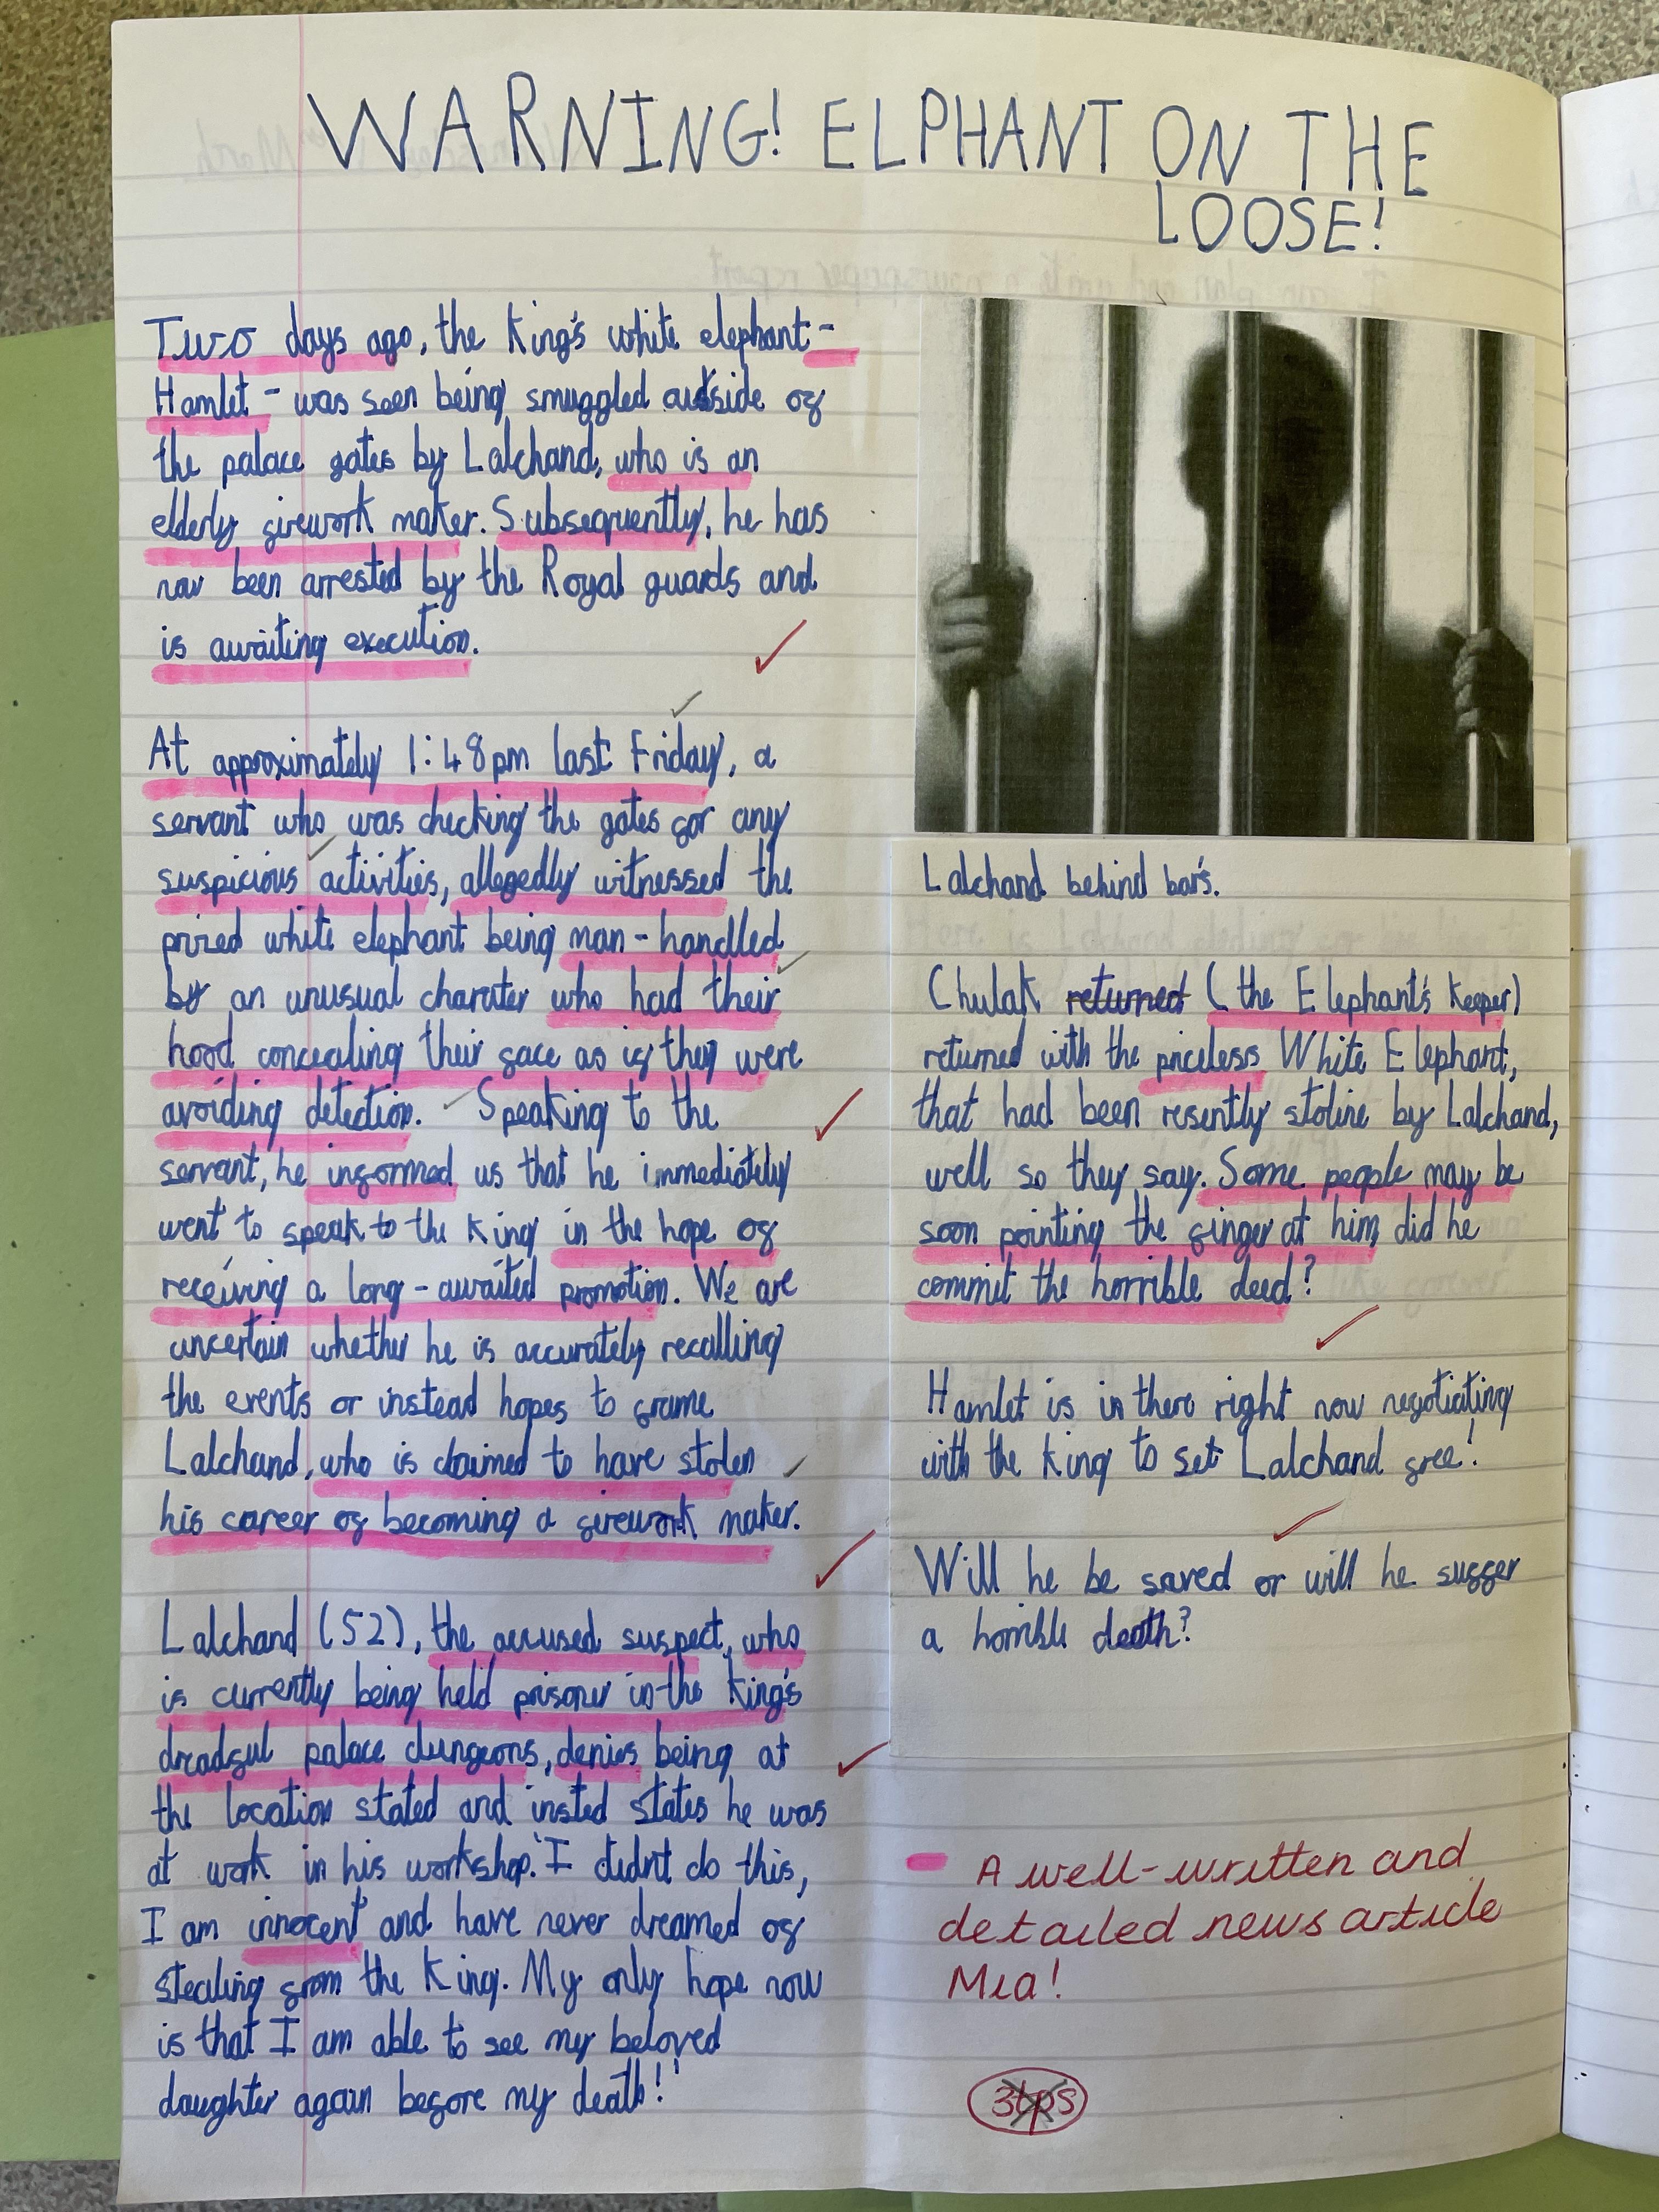 WARNING! ELPHANT ON THE
LOOSE!
Two days ago, the King's white elephant -
Hamlet - was seen being smuggled outside of
the palace gates by Lalchand, who is an
elderly firework maker. Subsequently, he has
now been arrested by the Royal guards and
is awaiting execution.
At approximately 1:48pm last Friday, a
servant who was checking the gates for any
suspicious activities, allegedly witnessed the
prized white elephant being man-handled
by an unusual charater who had their
hood concealing their face as if they were
avoiding detection. Speaking to the
servant, he informed us that he immediately
went to speak to the King in the hope of
receiving a long-awaited promotion. We are
uncertain whether he is accurately recalling
the events or instead hopes to frame
Lalchand, who is claimed to have stolen
his career of becoming a firework maker.
Lalchand (52), the accused suspect, who
is currently being held prisoner in the King's
dreadful palace dungeons, denies being at
the location stated and insted states he was
at work in his workshop. 'I didn't do this,
I am innocent and have never dreamed of
stealing from the King. My only hope now
is that I am able to see my beloved
daughter again before my death!'
Lalchand behind bars.
Chulak returned (the Elephant's Keeper)
returned with the priceless White Elephant,
that had been resently stoline by Lalchand,
well so they say. Some people may be
soon pointing the finger at him, did he
commit the horrible deed?
Hamlet is in there right now negotiating
with the King to set Lalchand free!
Will he be saved or will he suffer
a horrible death?
A well-written and
detailed news article
Mia!
3tps